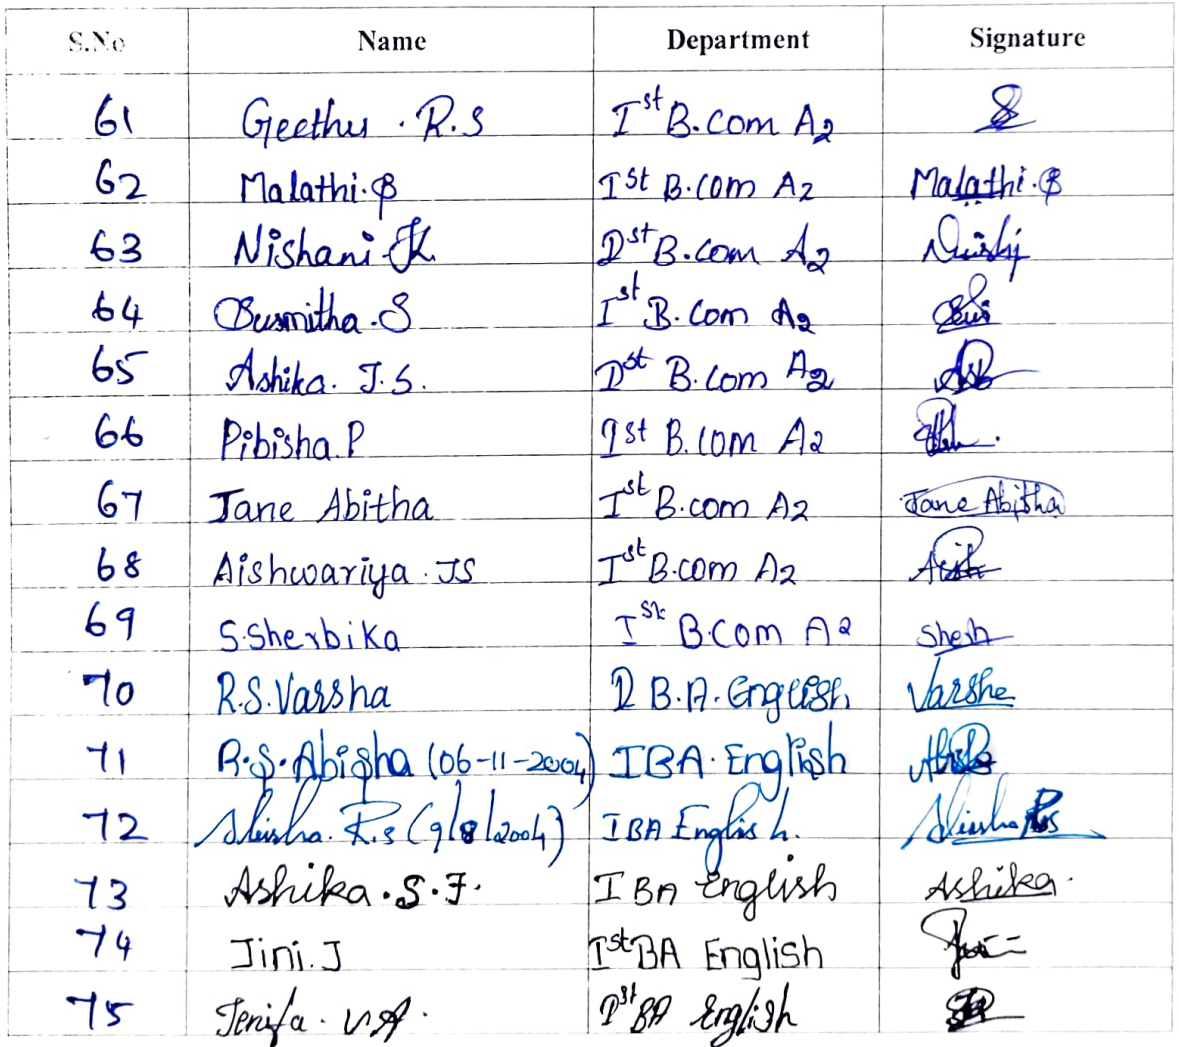 S.No Name Department Signature
61 Geethu . R.S Ist B.com A2
62 Malathi.B Ist B.com A2 Malathi.B
63 Nishani K Ist B.com A2
64 Susmitha.S Ist B.com A2
65 Ashika. J.S. Ist B.com A2
66 Pibisha.P Ist B.com A2
67 Jane Abitha Ist B.com A2 Jane Abitha
68 Aishwariya.JS Ist B.com A2
69 S.Sherbika Ist B.Com A2
70 R.S.Varsha I B.A. English Varsha
71 R.S.Abisha (06-11-2004) IBA. English
72 R.s (9/8/2004) IBA English.
73 Ashika.S.J. I BA English Ashika.
74 Jini.J Ist BA English
75 Jenifa. V.A. Ist BA English